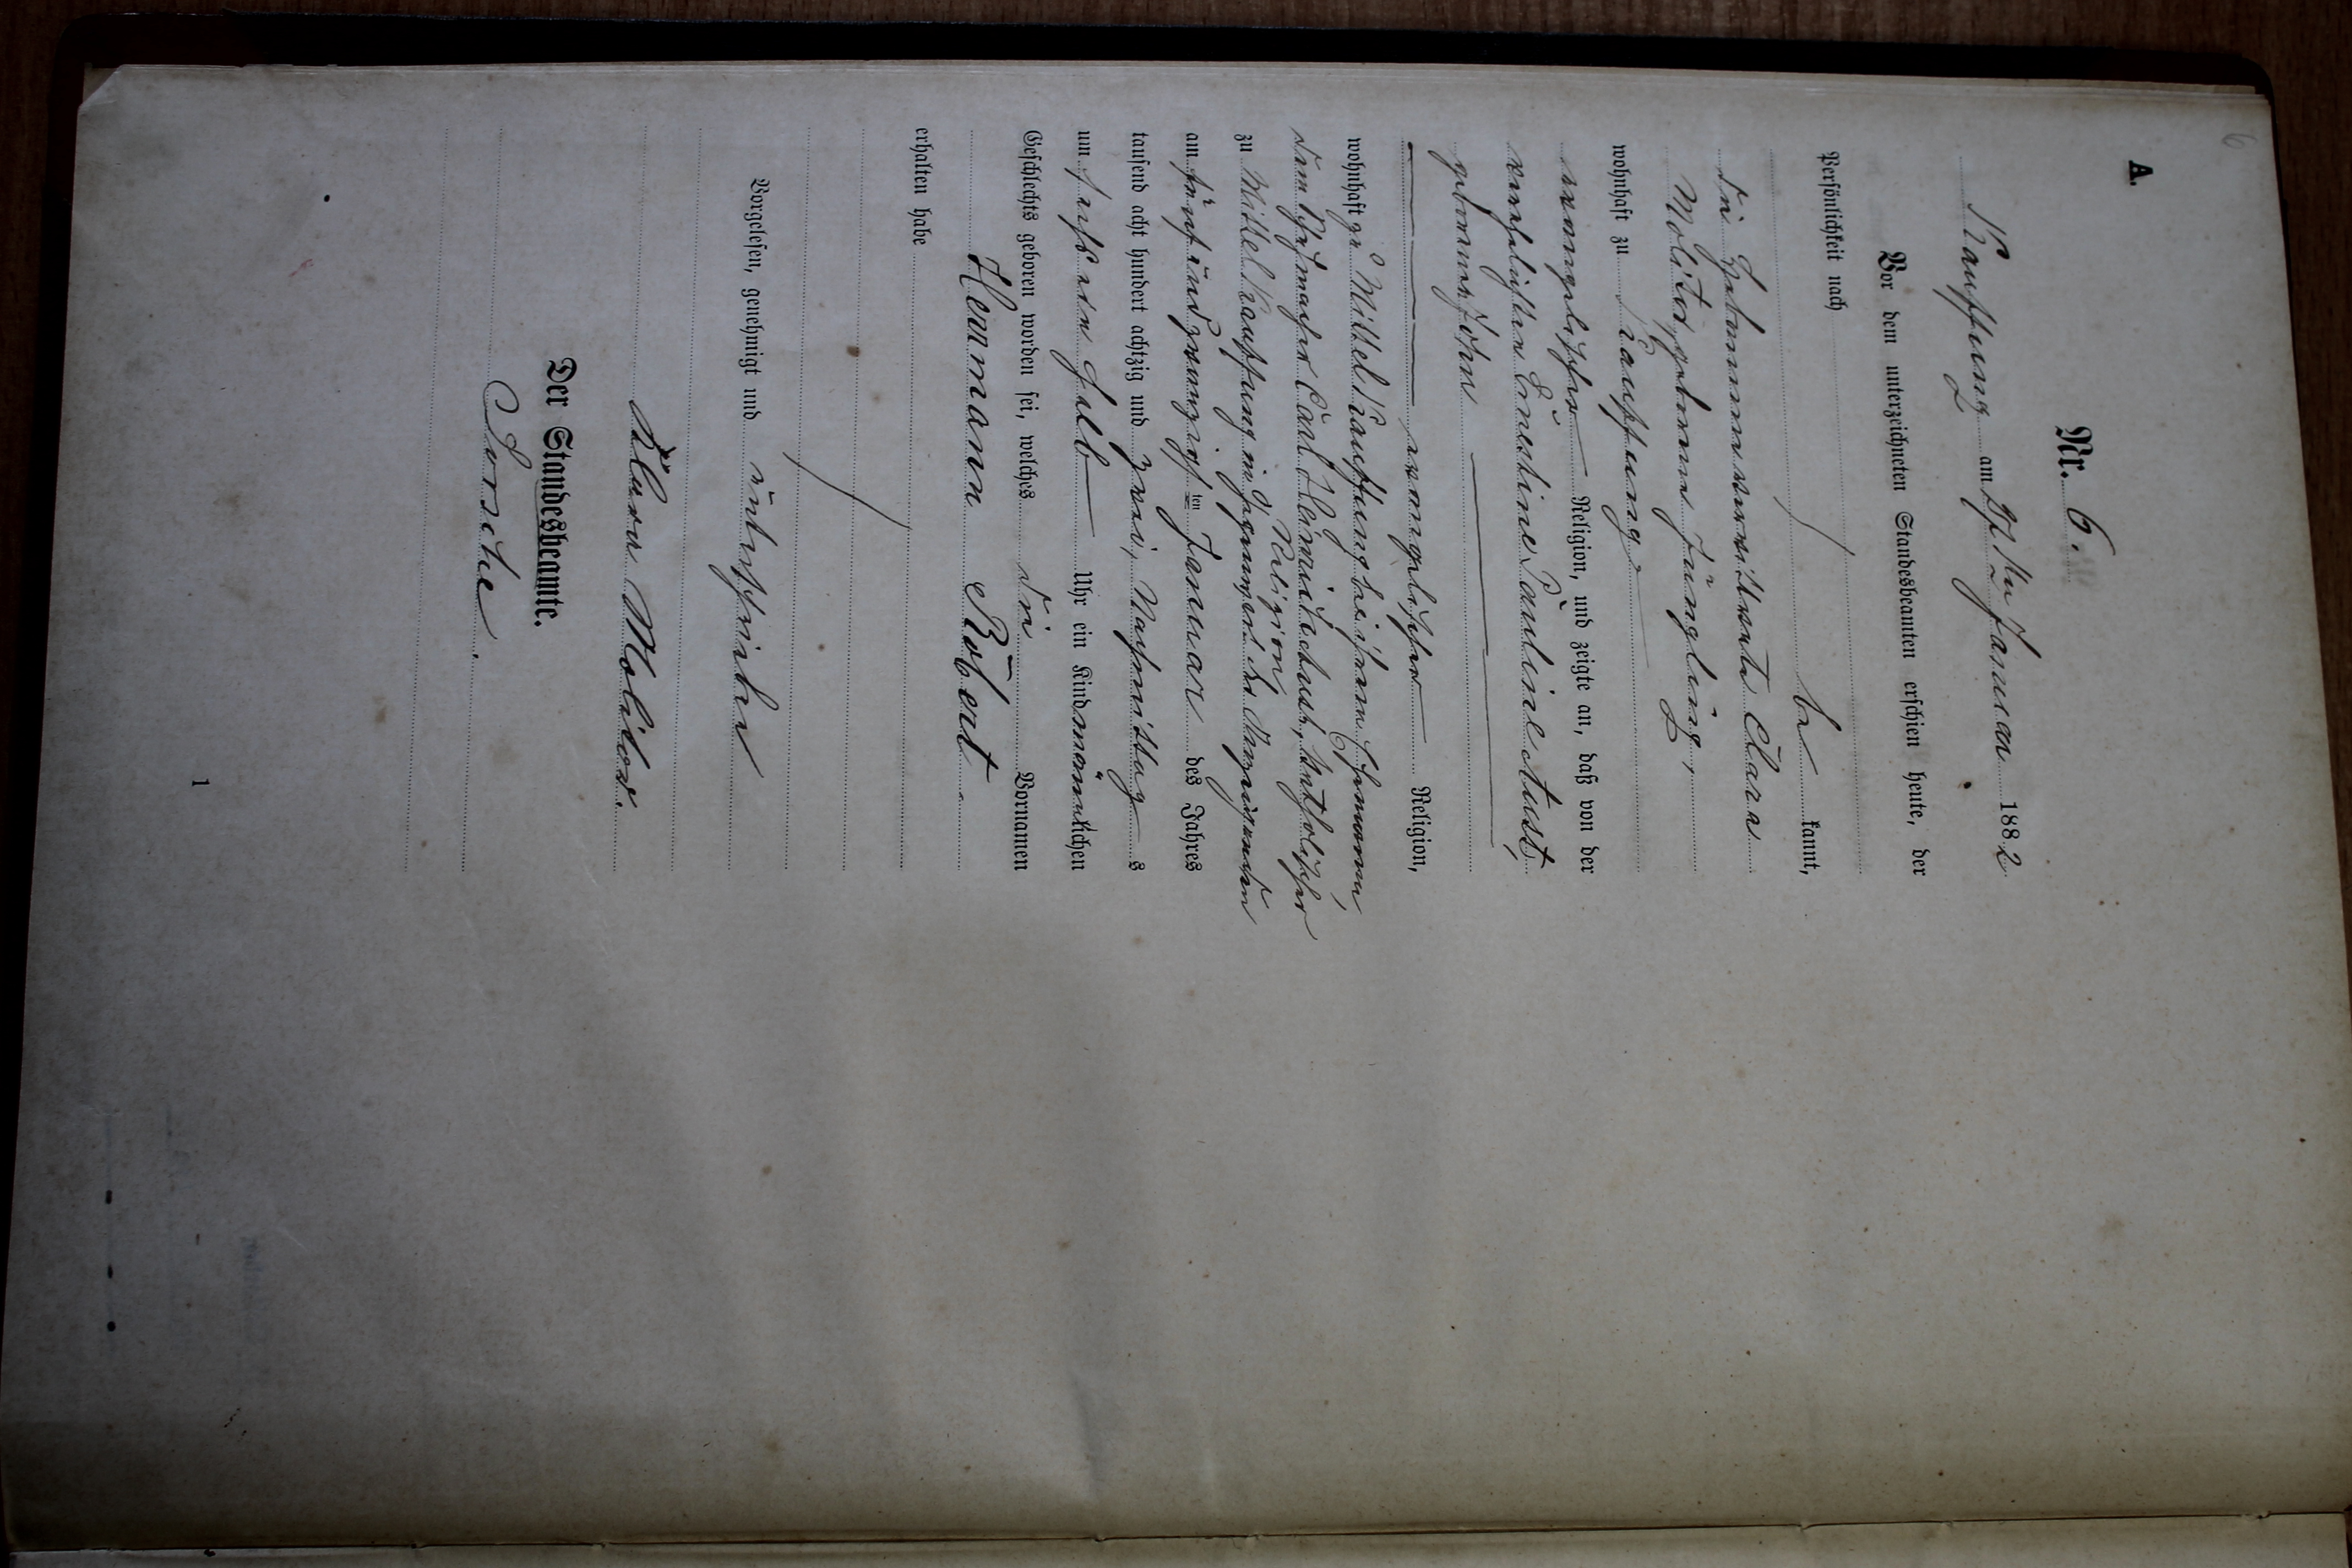 6
A.
Nr. 6.
Kauffung am 27ten Januar 1882
Vor dem unterzeichneten Standesbeamten erschien heute, der
Persönlichkeit nach
be kannt,
die Hebammenverwittwete Clara
Molitor, geborene Jüngling,
wohnhaft zu Kauffung,
evangelischer Religion, und zeigte an, daß von der
verehelichten Ernestine Pauline Aust,
geborenen
evangelischer Religion,
wohnhaft zu Mittel Kauffung bei ihrem Ehemanne,
dem Carl Heinrich Aust, katholischer
Religion
zu Mittel Kauffung in Gegenwart der Anzeigenden
am fünfundzwanzigsten Januar des Jahres
tausend acht hundert achtzig und zwei, Nachmittag s
um sechs ein halb Uhr ein Kind männlichen
Geschlechts geboren worden sei, welches die Vornamen
Hermann Robert.
erhalten habe
Vorgelesen, genehmigt und unterschrieben
Klara Molitor.
Der Standesbeamte.
1